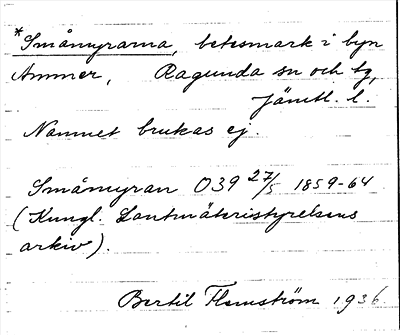 *Småmyrarna, betesmark i byn
Ammer, Ragunda sn och tg,
Jämtl. l.
Namnet brukas ej.
Småmyran O39 27/5 1859-64
(Kungl. Lantmäteristyrelsens
arkiv).
Bertil Flemström 1936.